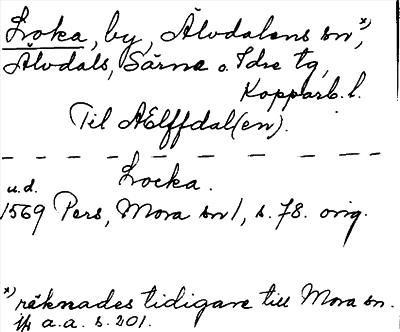 Loka, by, Älvdalens sn*),
Älvdals, Särna o. Idre tg,
Kopparb. l.
Til AElffdal(en).
Locka.
u.d.
1569 Pers, Mora sn 1, s. 78. orig.
*) räknades tidigare till Mora sn.
jfr a.a. s. 201.